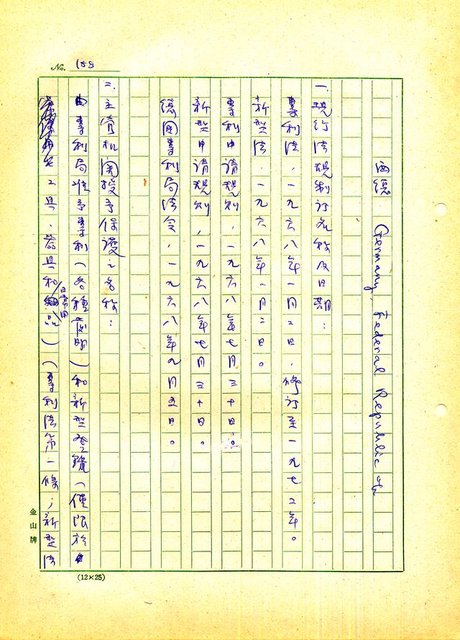 No. 188
西德 Germany, Federal Republic of
一.現行法規制訂名称及日期:
專利法,一九六八年一月二日,修訂至一九七二年。
新型法,一九六八年一月二日。
專利申請規則,一九六八年七月三十日。
新型申請規則,一九六八年七月三十日。
德国專利局法令,一九六八年九月五日。
二.主管机関授予保護之名称:
由專利局准予專利(各種發明)和新型登録(僅限於
工具,器具和日常用品)(專利法第一條;新型法
金山牌
(12×25)